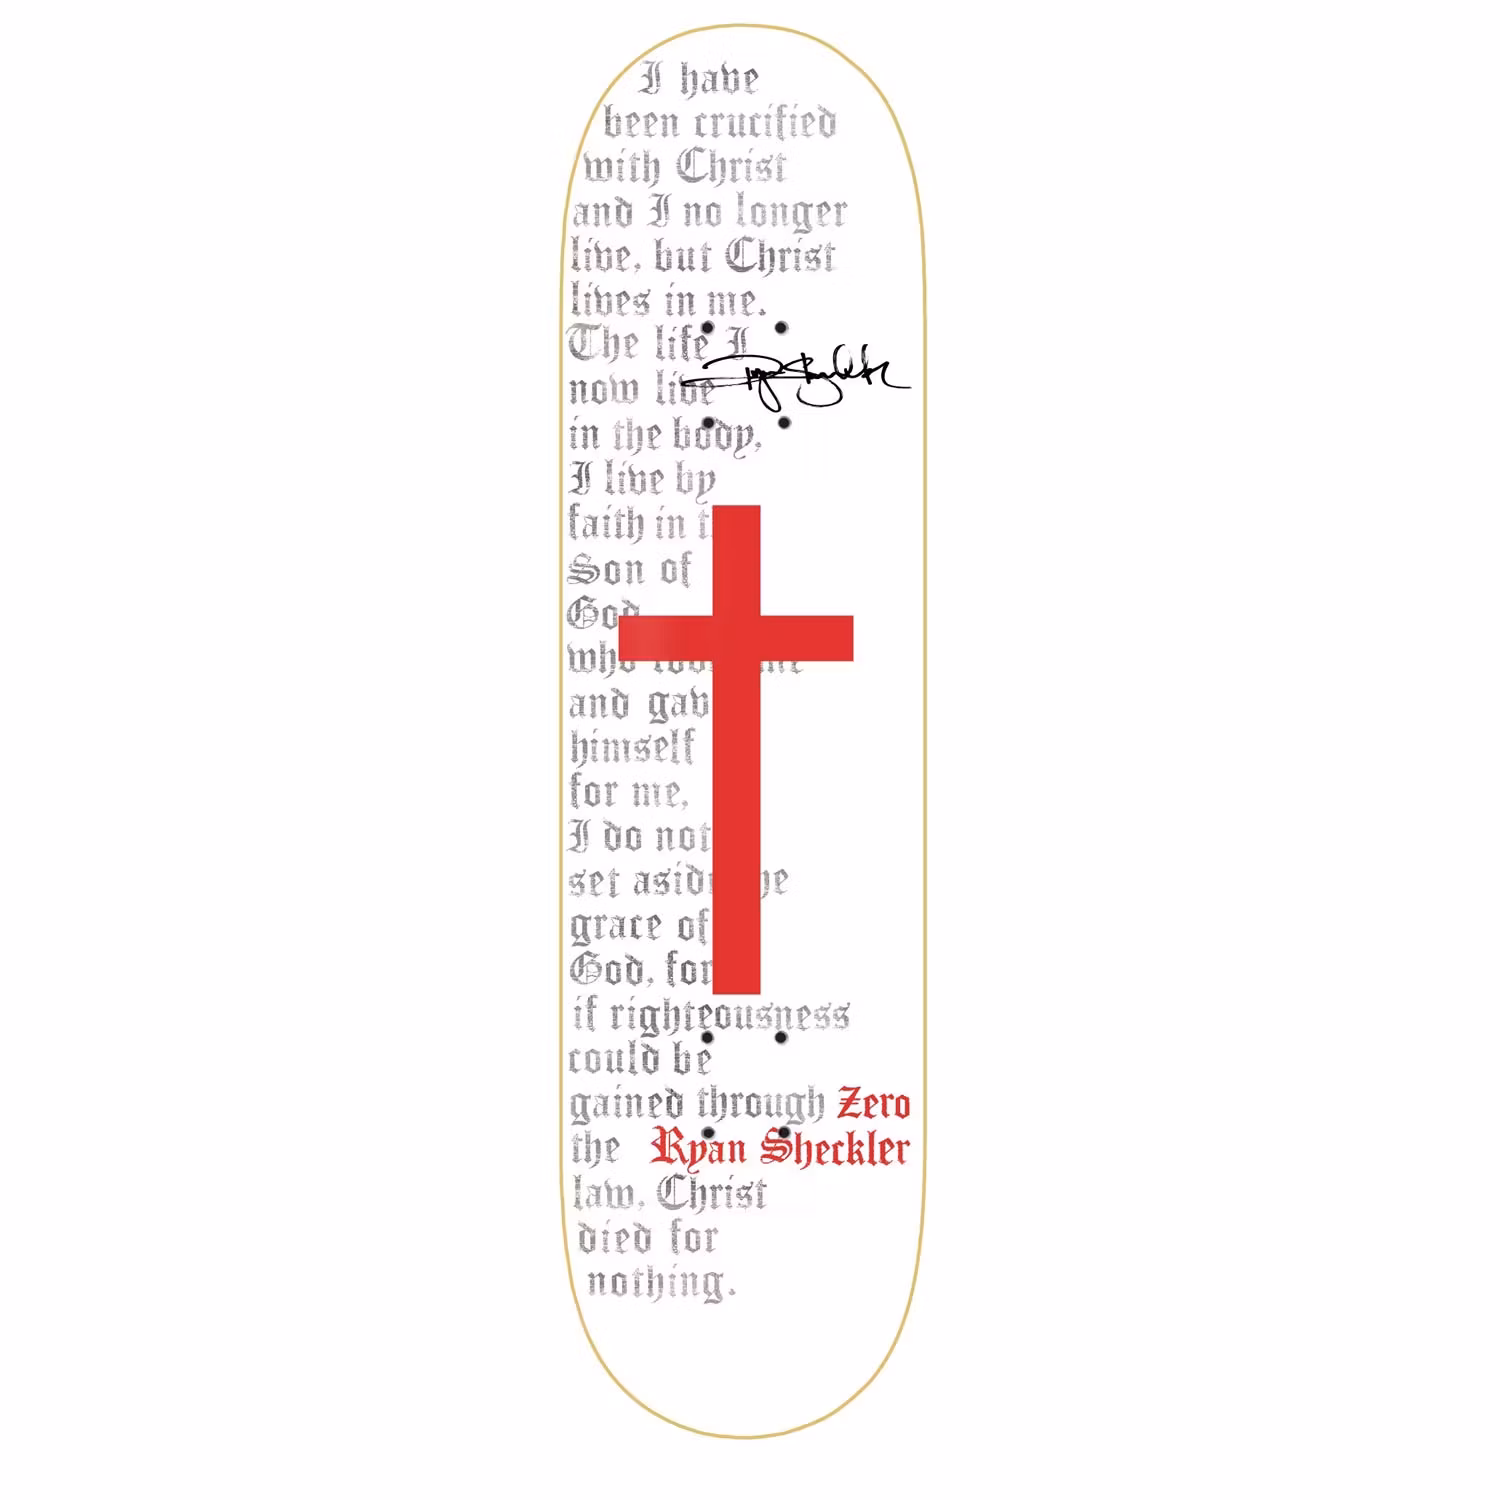 I have
been crucified
with Christ
and I no longer
live, but Christ
lives in me.
The life I
now live
in the body,
I live by
faith in
Son of
God
who me
and gav
himself
for me,
I do not
set asid he
grace of
God, for
if righteousness
could be
gained through Zero
the Ryan Sheckler
law, Christ
died for
nothing.